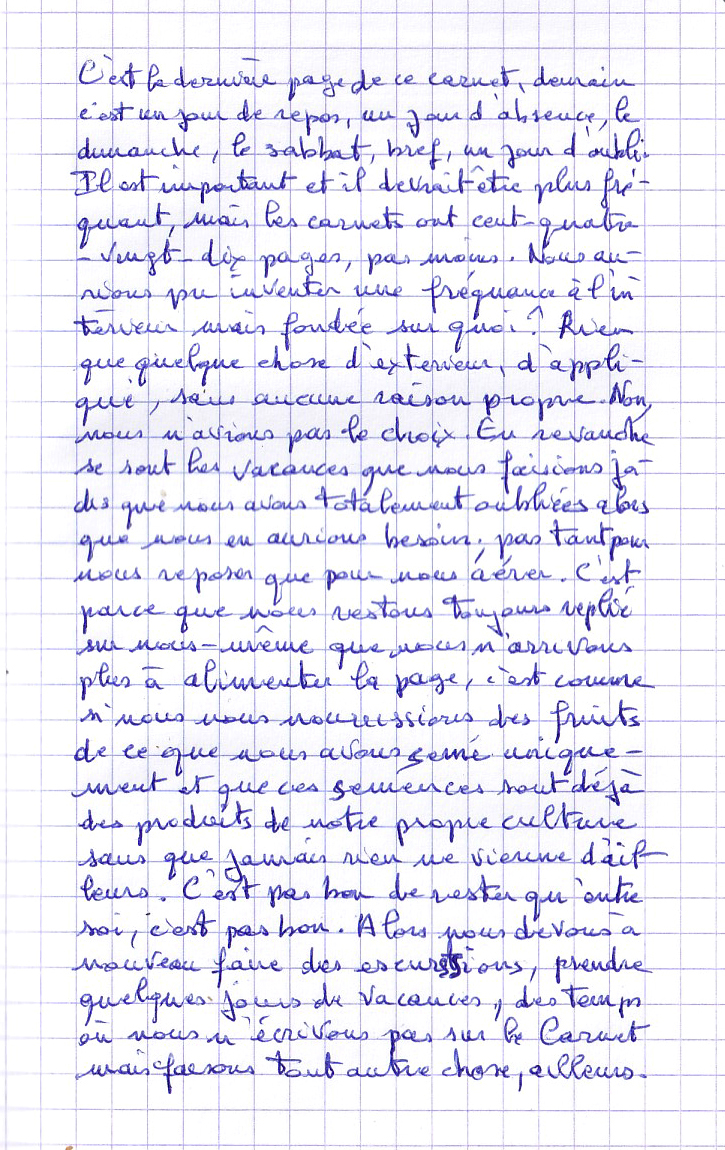 C'est la dernière page de ce carnet, demain
c'est un jour de repos, un jour d'absence, le
dimanche, le sabbat, bref, un jour d'oubli.
Il est important et il devrait être plus fré-
quant, mais les carnets ont cent-quatre
-vingt-dix pages, pas moins. Nous au-
rions pu inventer une fréquance à l'in
térieur mais fondée sur quoi ? Rien
que quelque chose d'exterieur, d'appli-
qué, sans aucune raison propre. Non,
nous n'avions pas le choix. En revanche
se sont les vacances que nous faisions ja-
dis que nous avons totalement oubliées alors
que nous en aurions besoin, pas tant pour
nous reposer que pour nous áérer. C'est
parce que nous restons toujours replié
sur nous-même que nous n'arrivons
plus à alimenter la page, c'est comme
si nous nous nourrissions des fruits
de ce que nous avons semé unique-
ment et que ces semences sont déjà
des produits de notre propre culture
sans que jamais rien ne vienne d'ail-
leurs. C'est pas bon de rester qu'entre
soi, c'est pas bon. Alors nous devons à
nouveau faire des escurssions, prendre
quelques jours de vacances, des temps
où nous n'écrivons pas sur le Carnet
mais faesons tout autre chose, ailleurs.